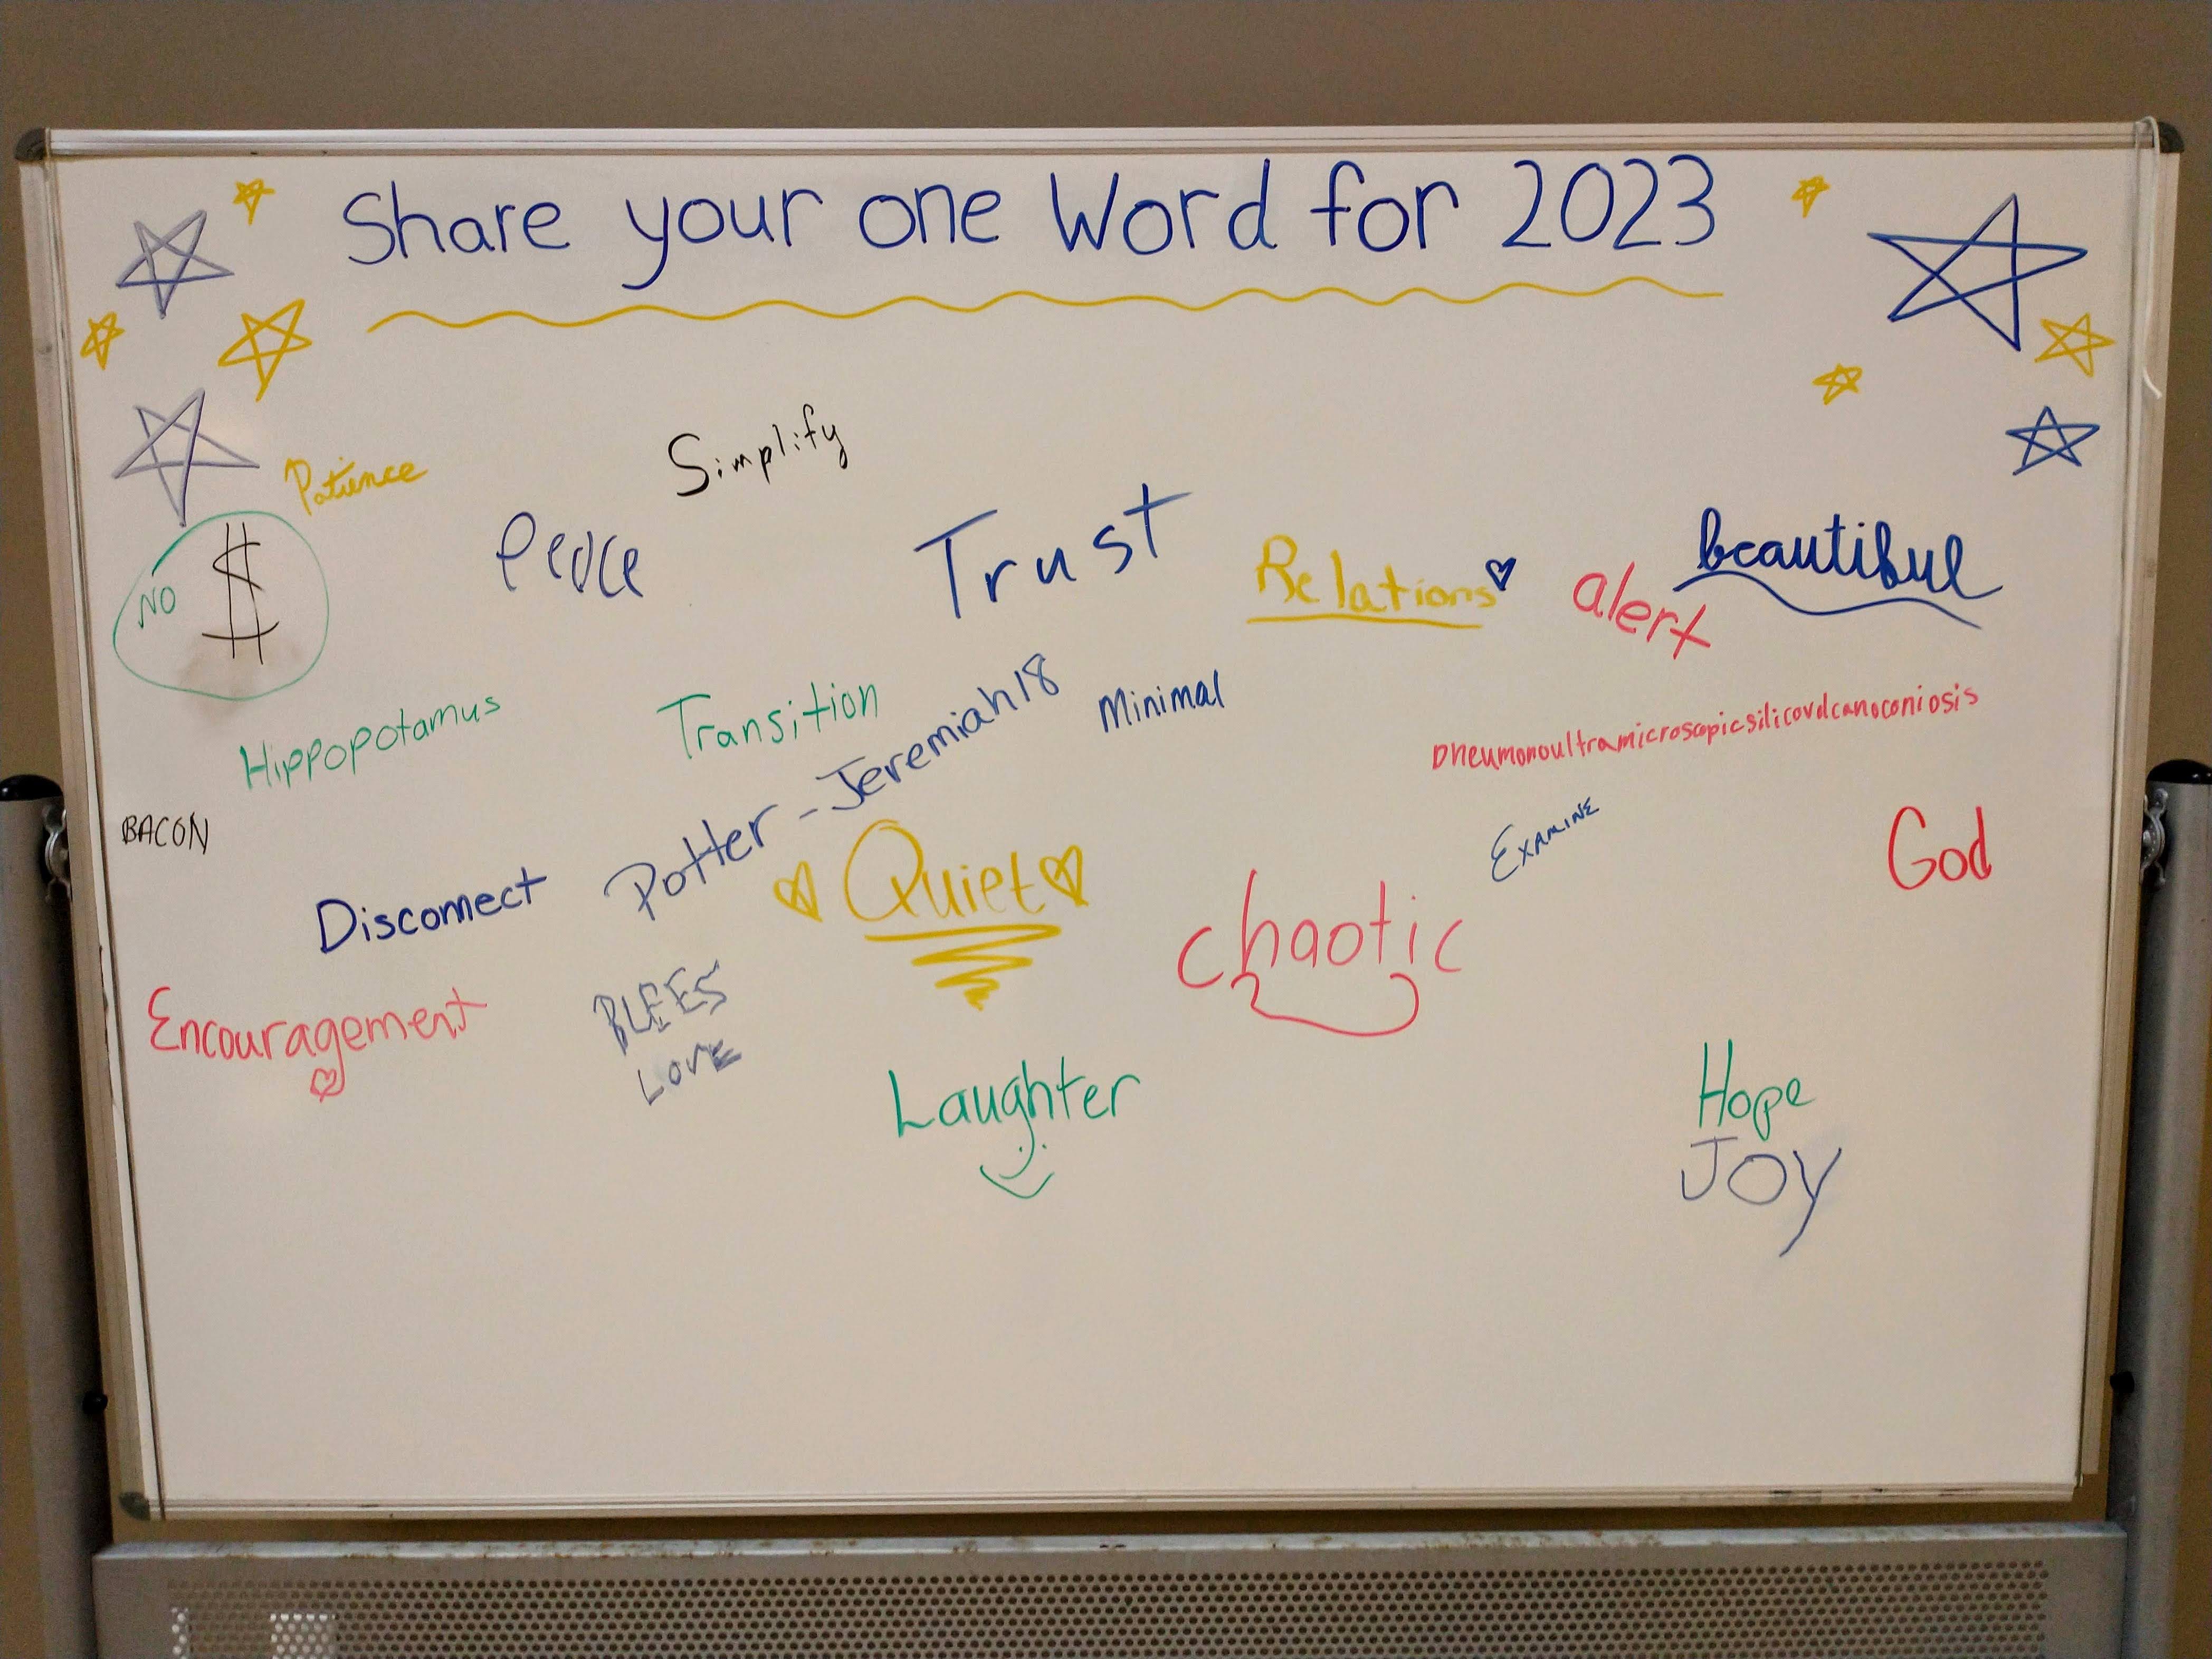 Share your one Word for 2023
Patience
Simplify
NO $
Peace
Trust
Relations
alert
beautiful
Hippopotamus
Transition
Potter - Jeremiah 18
Minimal
Pneumonoultramicroscopicsilicovolcanoconiosis
BACON
Disconnect
Quiet
chaotic
EXAMINE
God
Encouragement
BLEES
LOVE
Laughter
Hope
JOY